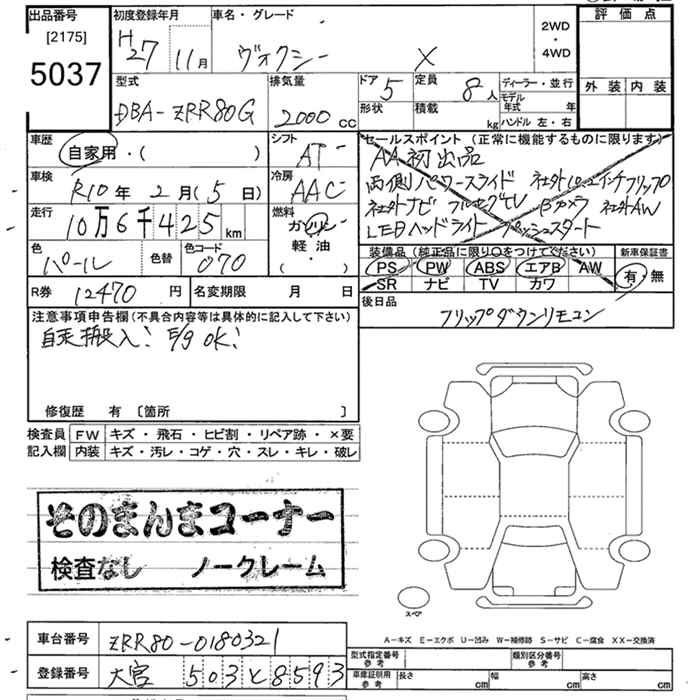 出品番号
[2175]
5037
初度登録年月
H27 11月
車名・グレード
ヴォクシー X
2WD
・
4WD
評価点
外装 内装
型式
DBA-ZRR80G
排気量
2000 cc
ドア 5
形状
定員 8人
積載 kg
ディーラー・並行
モデル年式 年
ハンドル 左・右
車歴
自家用・( )
シフト
AT
車検
R10年 2月(5日)
冷房
AAC
走行
10万6千425km
燃料
ガソリン
軽油
( ・ )
色
パール
色替
色コード
070
R券 12470円
名変期限 月 日
セールスポイント (正常に機能するものに限ります)
AA初出品
両側パワースライド 社外10.2インチフリップ
社外ナビ フルセグTV Bカメラ 社外AW
LEDヘッドライト プッシュスタート
装備品(純正品に限り○をつけてください)
PS PW ABS エアB AW
SR ナビ TV カワ
新車保証書
有・無
後日品
フリップダウンリモコン
注意事項申告欄(不具合内容等は具体的に記入して下さい)
自走搬入! E/g OK!
修復歴 有 〔箇所 〕
検査員記入欄
FW キズ・飛石・ヒビ割・リペア跡・×要
内装 キズ・汚レ・コゲ・穴・スレ・キレ・破レ
そのまんまコーナー
検査なし ノークレーム
スペア
A-キズ E-エクボ U-凹み W-補修跡 S-サビ C-腐食 XX-交換済
車台番号 ZRR80-0180321
登録番号 大宮 503 と 8593
型式指定番号 参考
類別区分番号 参考
車庫証明用 参考
長さ cm
幅 cm
高さ cm